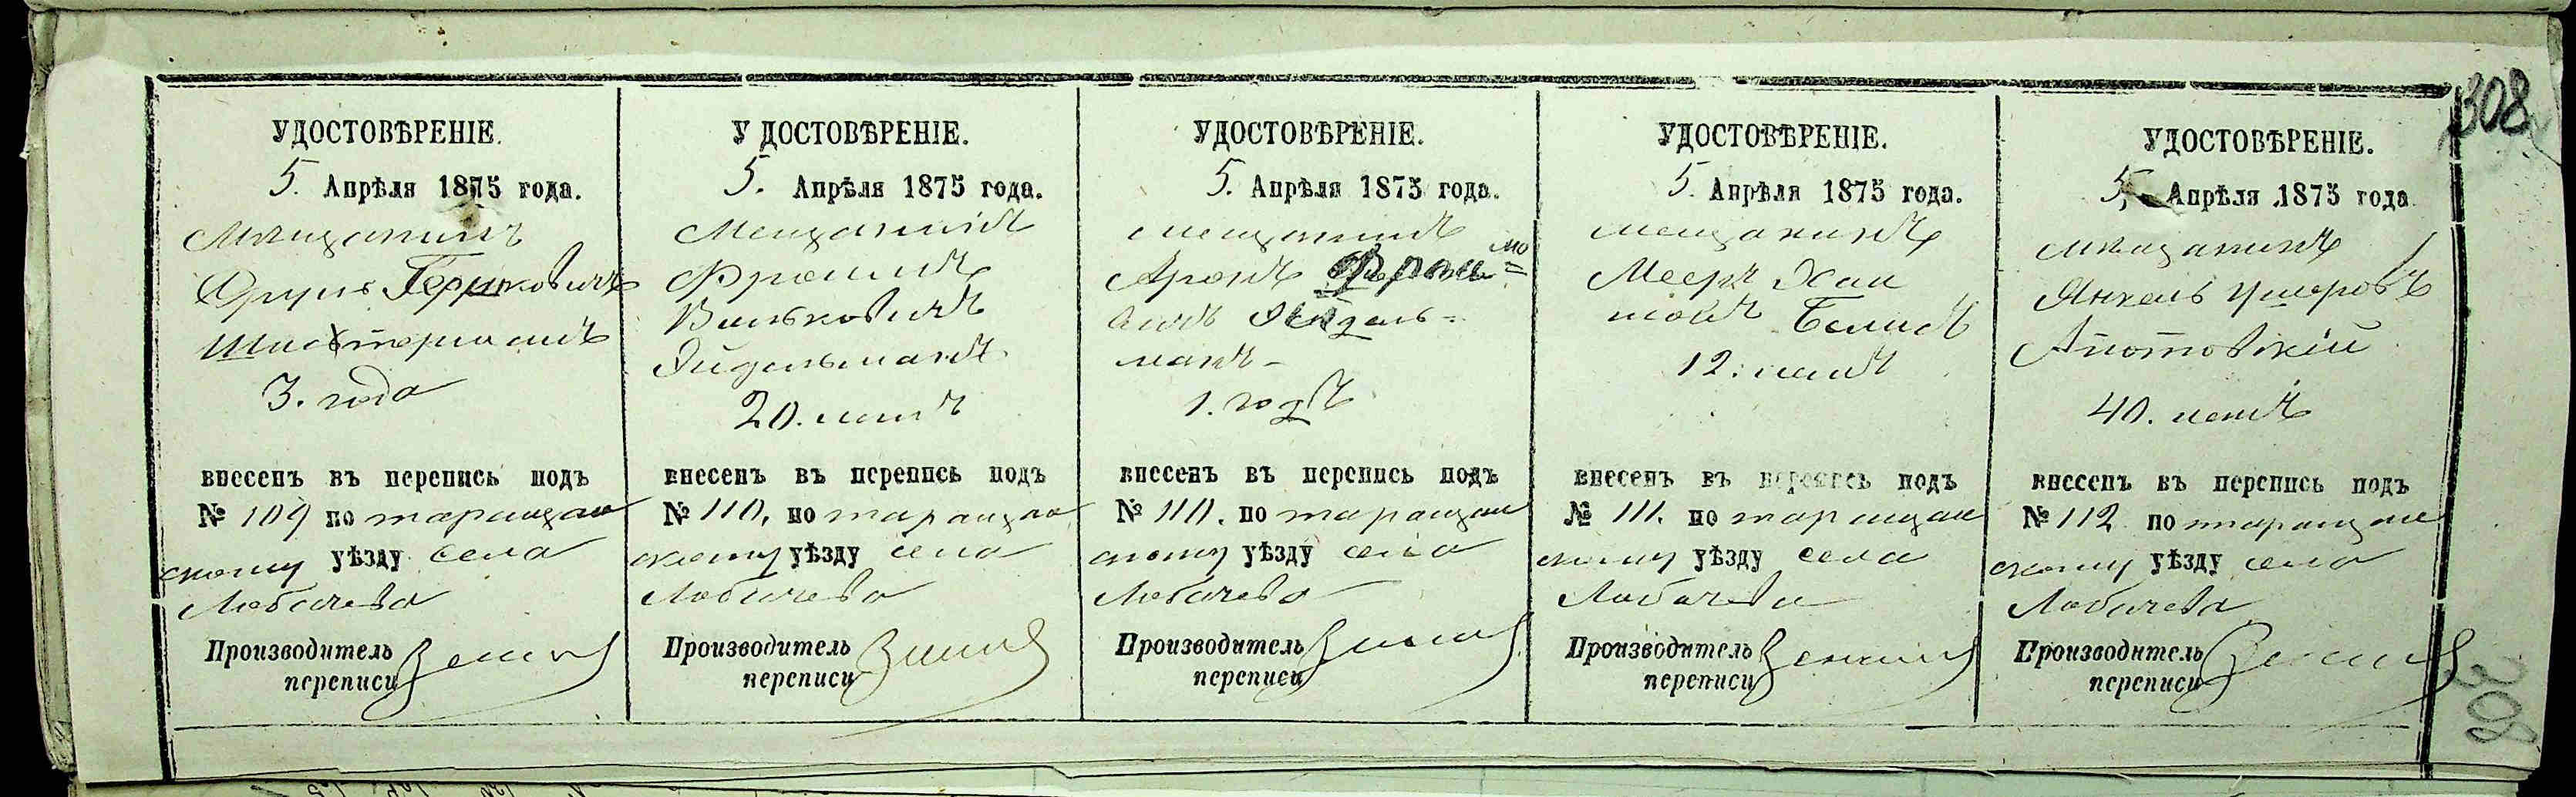 308
УДОСТОВѢРЕНІЕ.
5. Апрѣля 1875 года.
Мѣщанинъ
Берковичъ
3. года
внесенъ въ перепись подъ
№ 109 по таращан
скому уѣзду села
Лобачева
Производитель
переписи
УДОСТОВѢРЕНІЕ.
5. Апрѣля 1875 года.
Мещанинъ
Фроимъ
Вольковичъ
Эйдельманъ.
20. летъ
внесенъ въ перепись подъ
№ 110. по таращан
скому уѣзду села
Лобачева
Производитель
переписи
УДОСТОВѢРЕНІЕ.
5. Апрѣля 1875 года.
мещанинъ
Аронъ Фрои=мо
вичъ Эйдель=
манъ-
1. годъ
внесенъ въ перепись подъ
№ 110. по таращан
скому уѣзду села
Лобачева
Производитель
переписи
УДОСТОВѢРЕНІЕ.
5. Апрѣля 1875 года.
мещанинъ
Мееръ Хаи
12. летъ
внесенъ въ перепись подъ
№ 111. по таращан
скому уѣзду села
Лобачева
Производитель
переписи
УДОСТОВѢРЕНІЕ.
5. Апрѣля 1875 года
мѣщанинъ
Янкель Ушеровъ
40. летъ
внесенъ въ перепись подъ
№ 112 по таращан
скому уѣзду села
Лобачева
Производитель
переписи
308